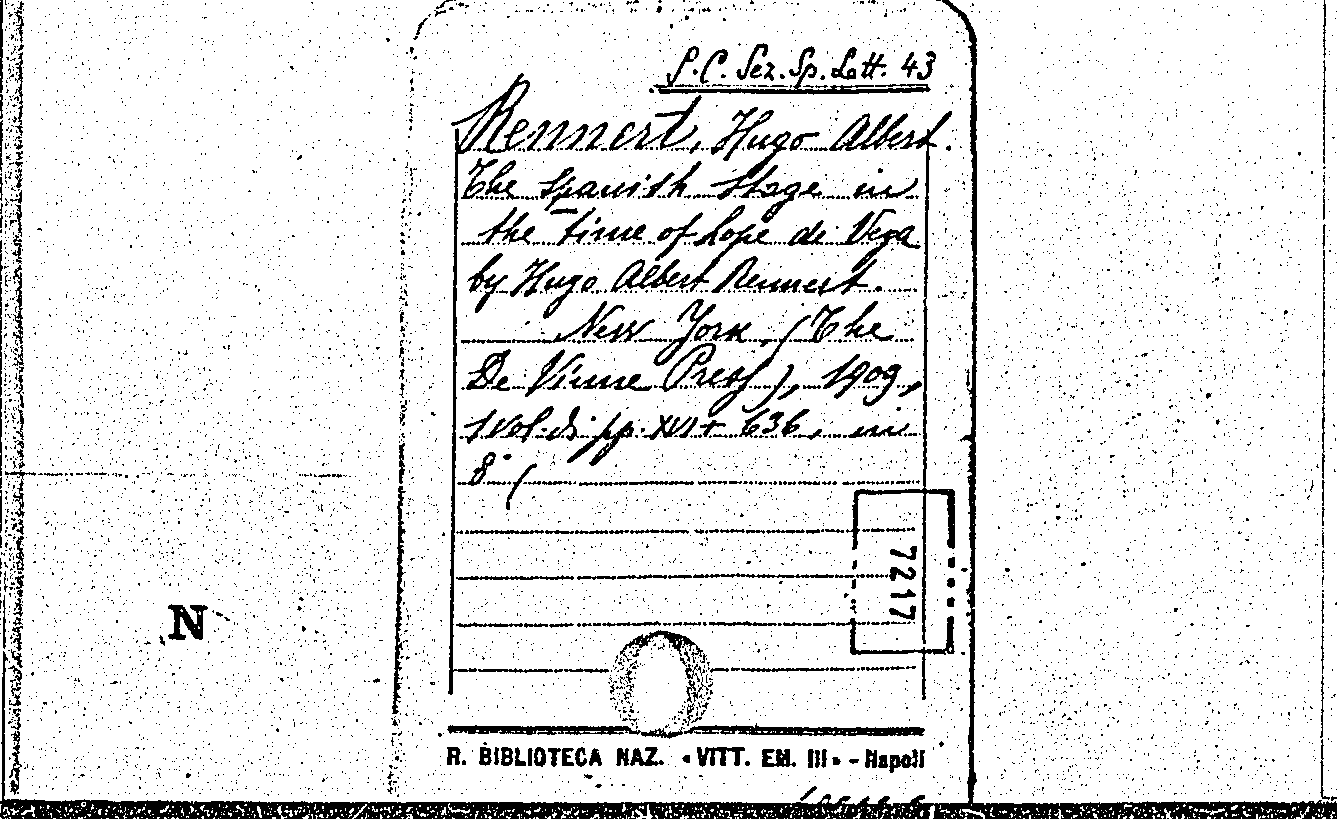 S.C. Sez. Sp. Lett. 43
Rennert, Hugo Albert.
The Spanish Stage in
the time of Lope de Vega
by Hugo Albert Rennert.
New York (The
De Vinne Press), 1909,
1 vol. di pp. XVI + 636, in
8° (
7217
N
R. BIBLIOTECA NAZ. «VITT. EM. III» - Napoli